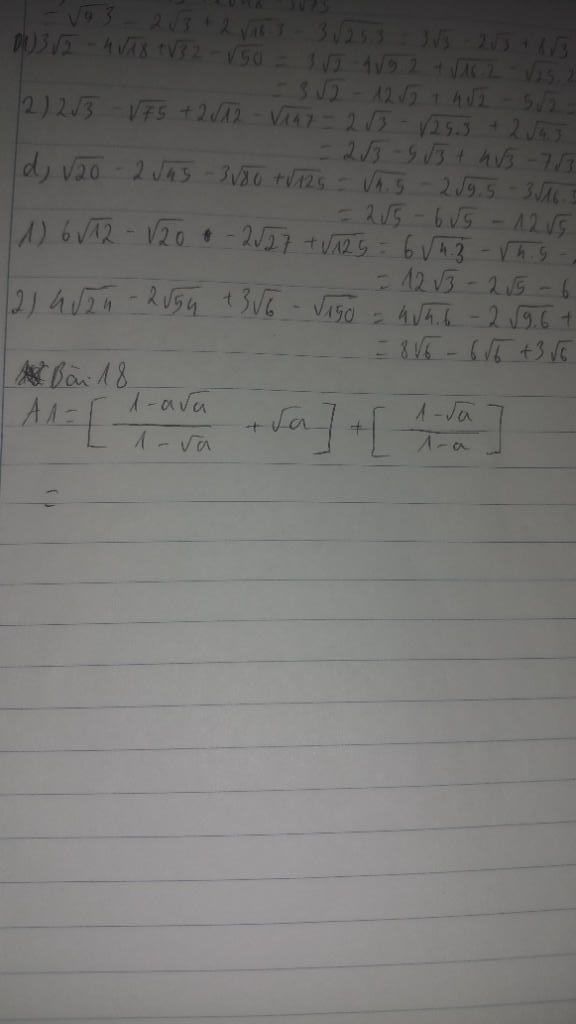 = √9.3 - 2√3 + 2√16.3 - 3√25.3 = 3√3 - 2√3 + 8√3
3√2 - 4√18 + √32 - √50 = 3√2 - 4√9.2 + √16.2 - √25.2
= 3√2 - 12√2 + 4√2 - 5√2 =
2) 2√3 - √75 + 2√12 - √147 = 2√3 - √25.3 + 2√4.3
= 2√3 - 5√3 + 4√3 - 7√3
d, √20 - 2√45 - 3√80 + √125 = √4.5 - 2√9.5 - 3√16.5
= 2√5 - 6√5 - 12√5
1) 6√12 - √20 - 2√27 + √125 = 6√4.3 - √4.5 -
= 12√3 - 2√5 - 6
2) 4√24 - 2√54 + 3√6 - √150 = 4√4.6 - 2√9.6 +
= 8√6 - 6√6 + 3√6
Bài 18
A1 = [ (1-a√a)/(1-√a) + √a ] + [ (1-√a)/(1-a) ]
=